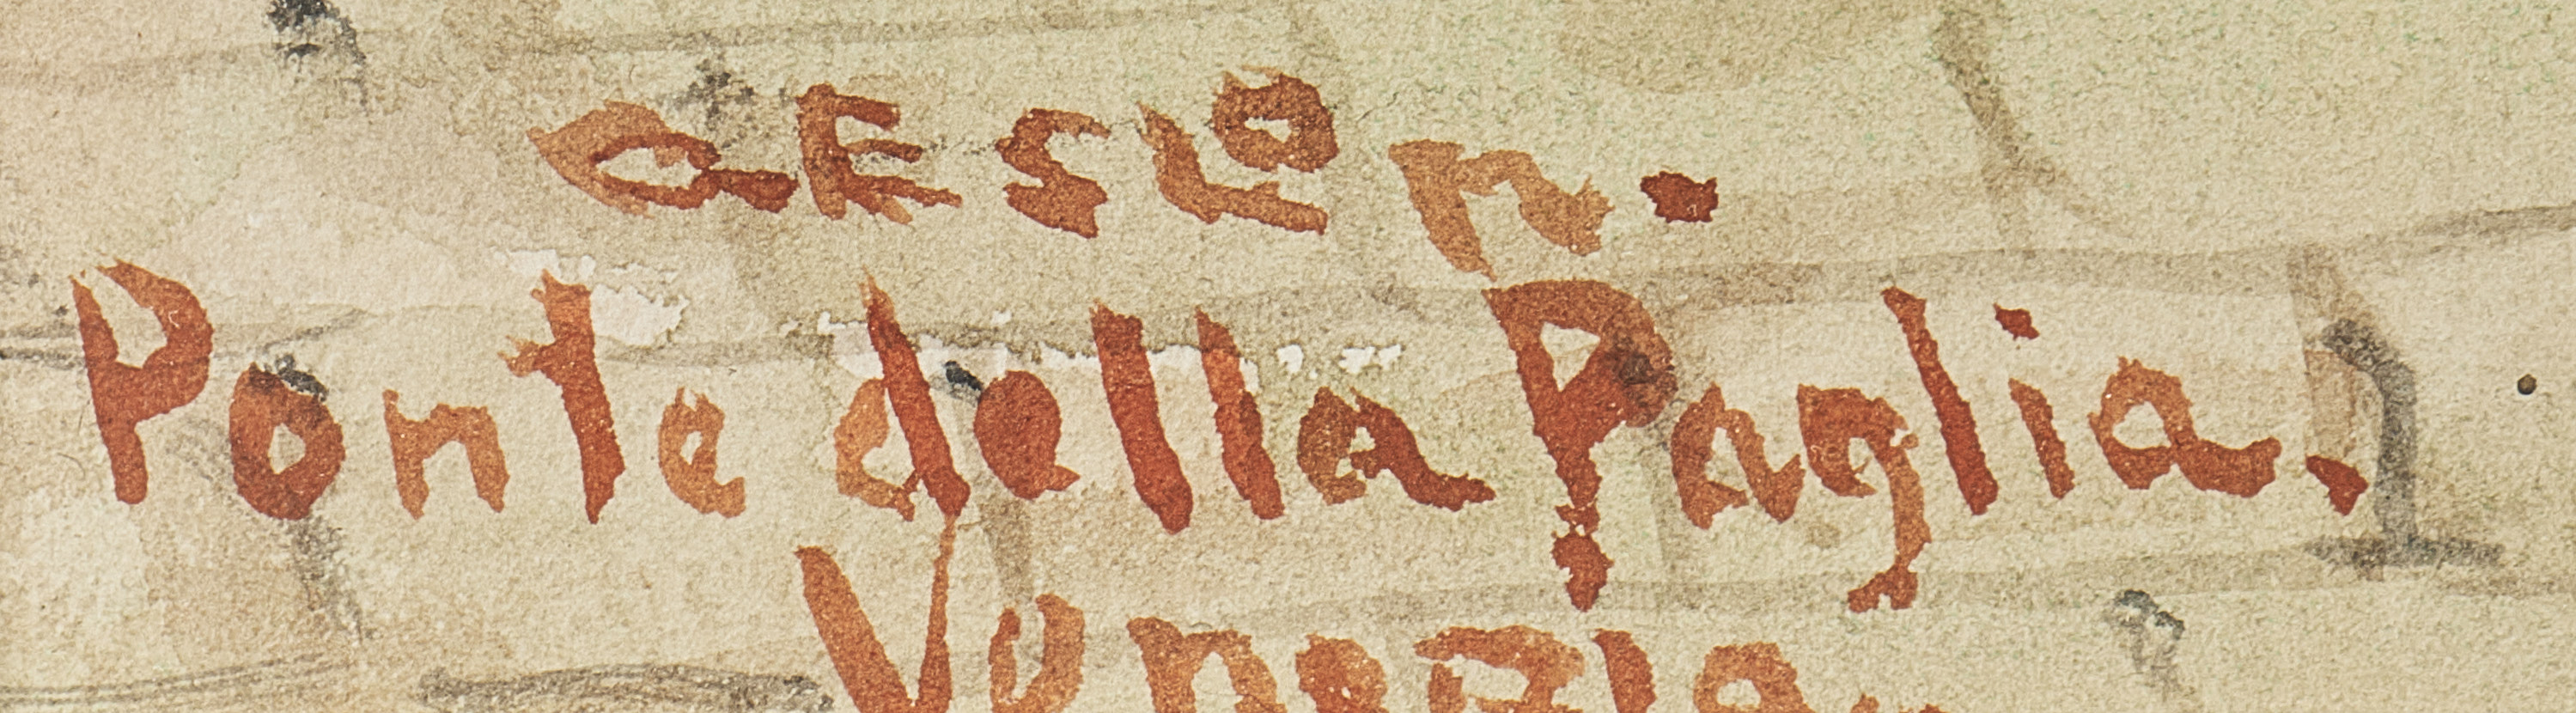 Ponte della Paglia.
Venezia.